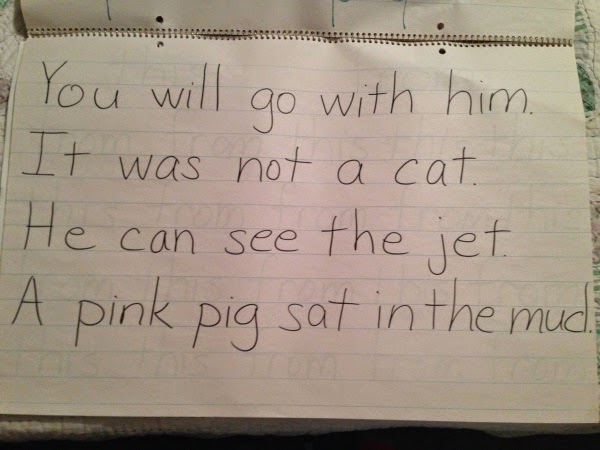 You will go with him.
It was not a cat.
He can see the jet.
A pink pig sat in the mud.